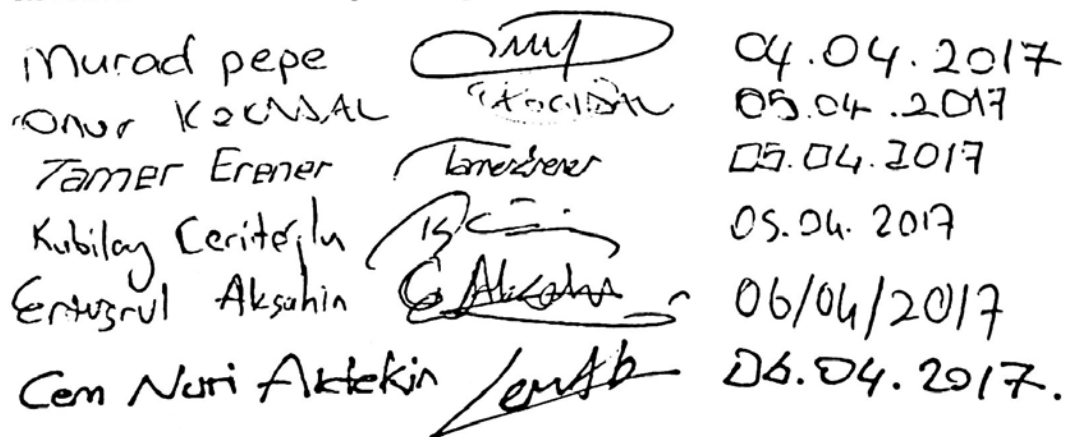 Murad pepe 04.04.2017
Onur KOCADAL KOCADAL 05.04.2017
Tamer Erener Tamer Erener 05.04.2017
Kubilay Ceritoğlu 05.04.2017
Ertuğrul Akşahin 06/04/2017
Cem Nuri Aktekin 06.04.2017.